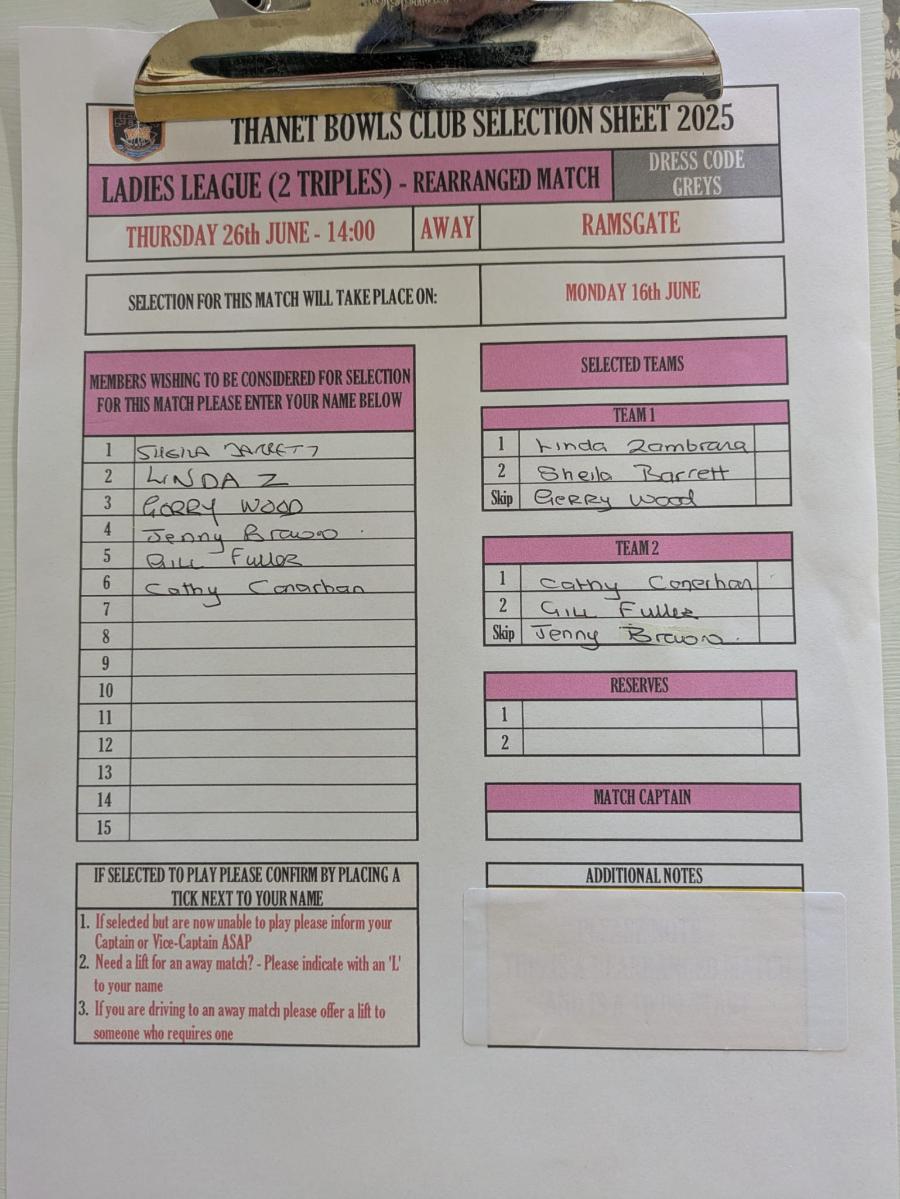 THANET BOWLS CLUB SELECTION SHEET 2025
LADIES LEAGUE (2 TRIPLES) - REARRANGED MATCH
DRESS CODE
GREYS
THURSDAY 26th JUNE - 14:00
AWAY
RAMSGATE
SELECTION FOR THIS MATCH WILL TAKE PLACE ON:
MONDAY 16th JUNE
MEMBERS WISHING TO BE CONSIDERED FOR SELECTION
FOR THIS MATCH PLEASE ENTER YOUR NAME BELOW
1 SHEILA BARRETT
2 LINDA Z
3 GERRY WOOD
4 Jenny Brown
5 Gill Fuller
6 Cathy Conachan
7
8
9
10
11
12
13
14
15
SELECTED TEAMS
TEAM 1
1 Linda Zambrana
2 Sheila Barrett
Skip Gerry Wood
TEAM 2
1 Cathy Conerhan
2 Gill Fuller
Skip Jenny Brown
RESERVES
1
2
MATCH CAPTAIN
IF SELECTED TO PLAY PLEASE CONFIRM BY PLACING A
TICK NEXT TO YOUR NAME
1. If selected but are now unable to play please inform your
Captain or Vice-Captain ASAP
2. Need a lift for an away match? - Please indicate with an 'L'
to your name
3. If you are driving to an away match please offer a lift to
someone who requires one
ADDITIONAL NOTES